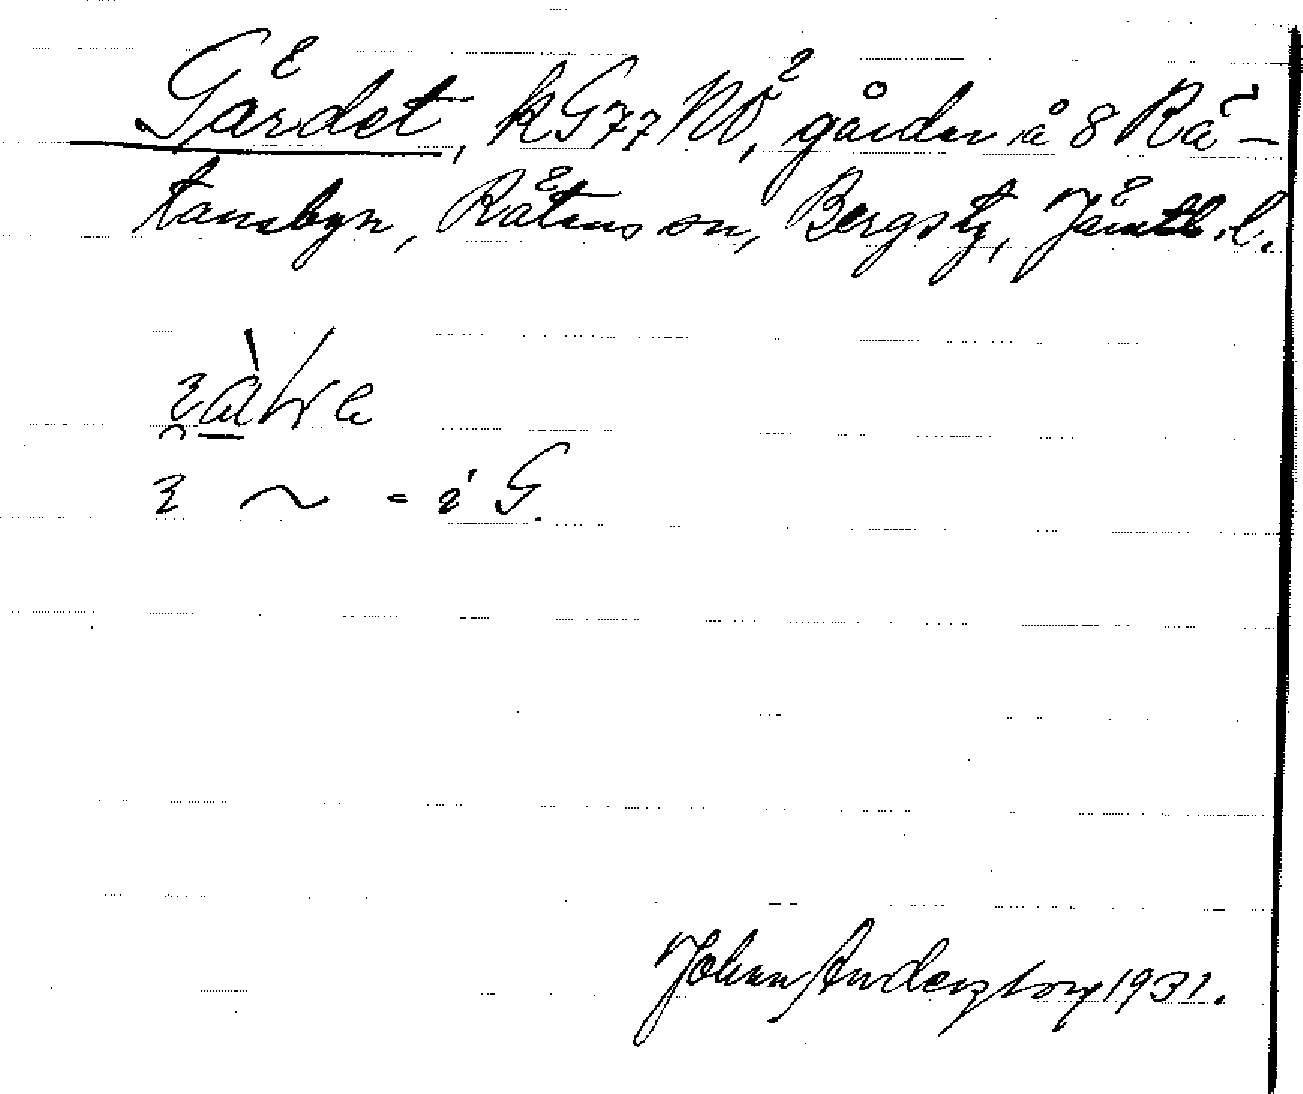 Gärdet, kG77NÖ, gårdar å 8 Rä-
tansbyn, Rätans sn, Bergs tg, Jämtl. l.
~ = i G.
Johan Anderztorp 1931.